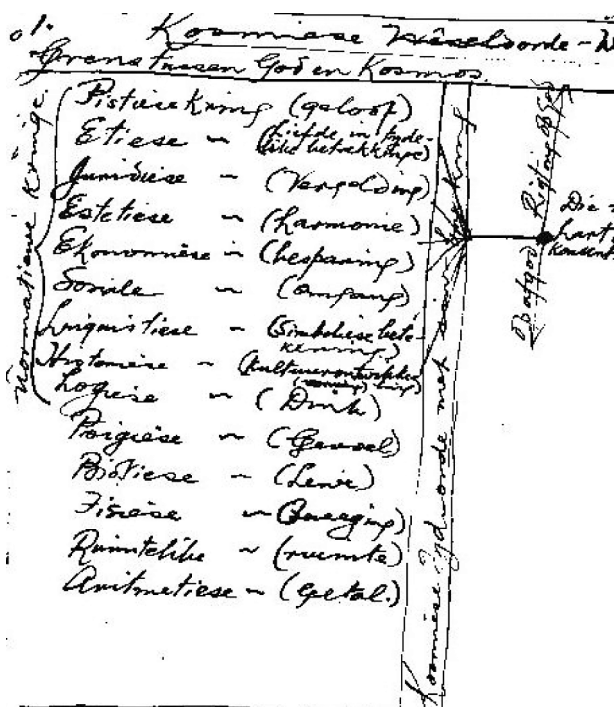 1.
Kosmiese Wêseloorde - W
Grens tussen God en Kosmos
Normatiewe Kringe
Pistiese Kring (geloof)
Etiese ~ (Liefde in tyde-
like betrekkinge)
Juridiese ~ (Vergelding)
Estetiese ~ (harmonie)
Ekonomiese ~ (besparing)
Sosiale ~ (omgang)
Linguistiese ~ (Simboliese bete-
kening)
Historiese ~ (Kultuurontwikke-
ling)
Logiese ~ (Dink)
Psigiese ~ (Gevoel)
Biotiese ~ (Lewe)
Fisiese ~ (Beweging)
Ruimtelike ~ (ruimte)
Aritmetiese ~ (Getal.)
Kosmiese Tydsorde met
kring
Rigting
God
Die
hart
konsent